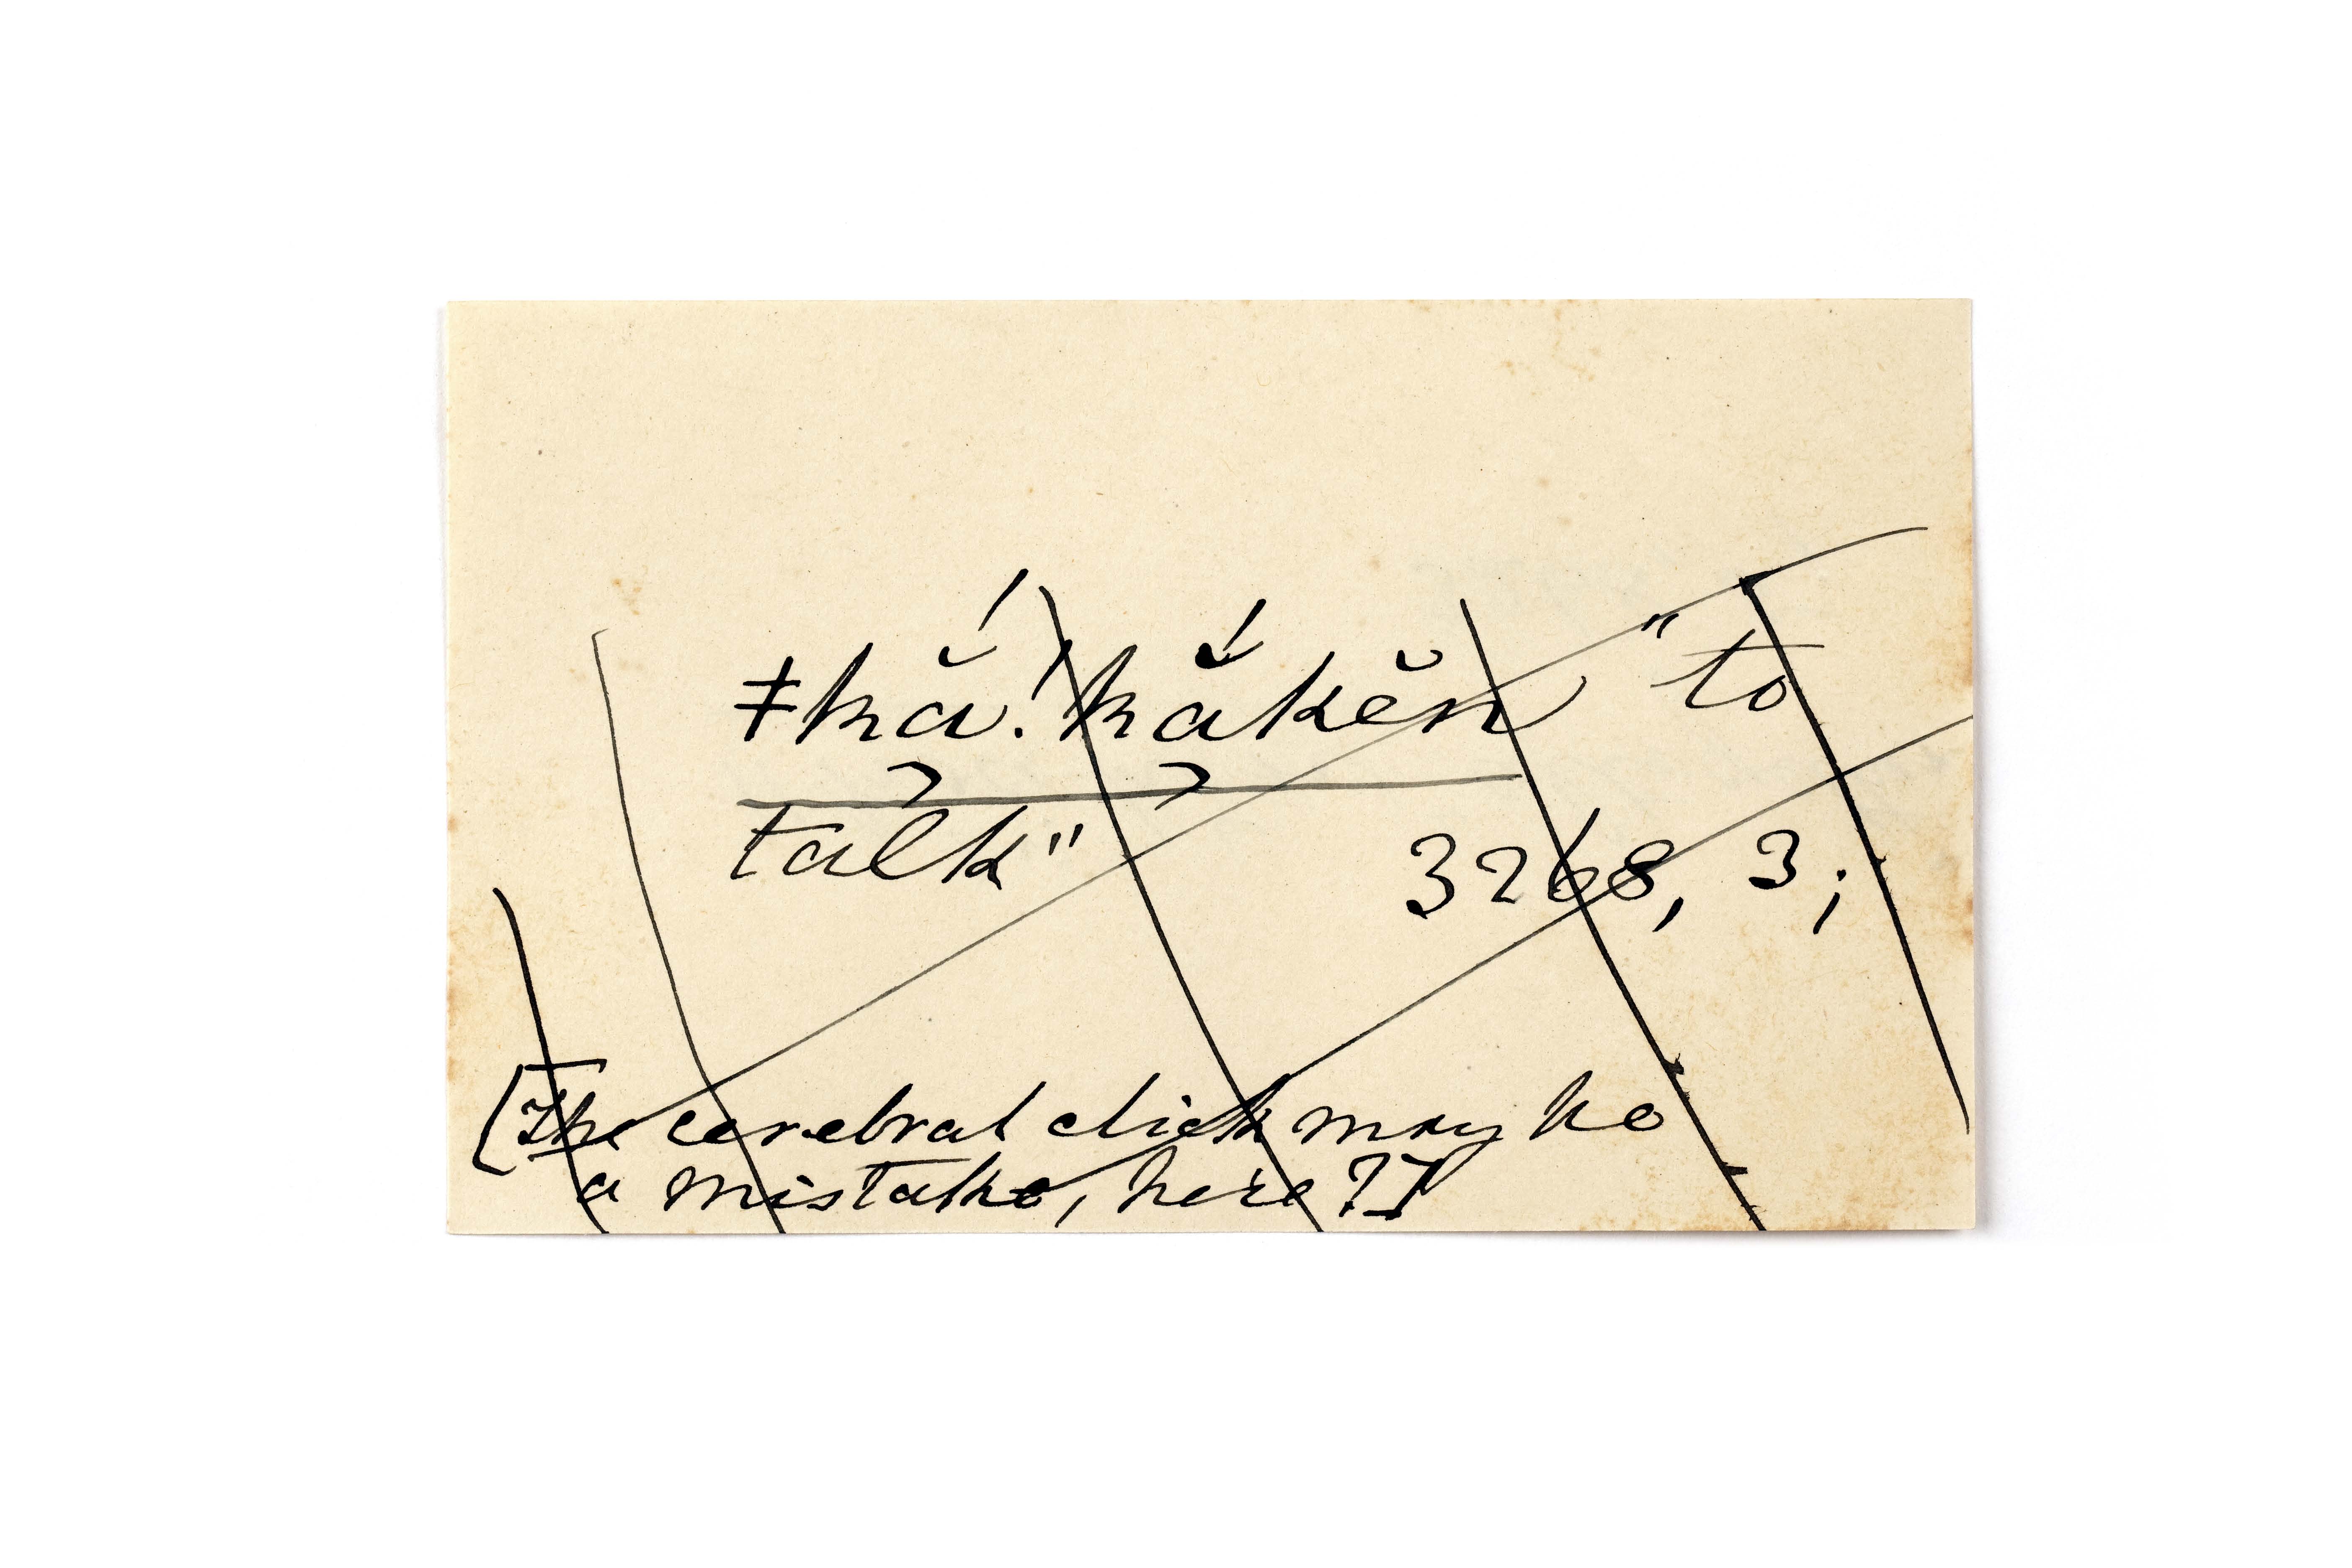 ǂkắ!kắkĕn "to
talk" 3268, 3;
[The cerebral click may be
a mistake, here?]